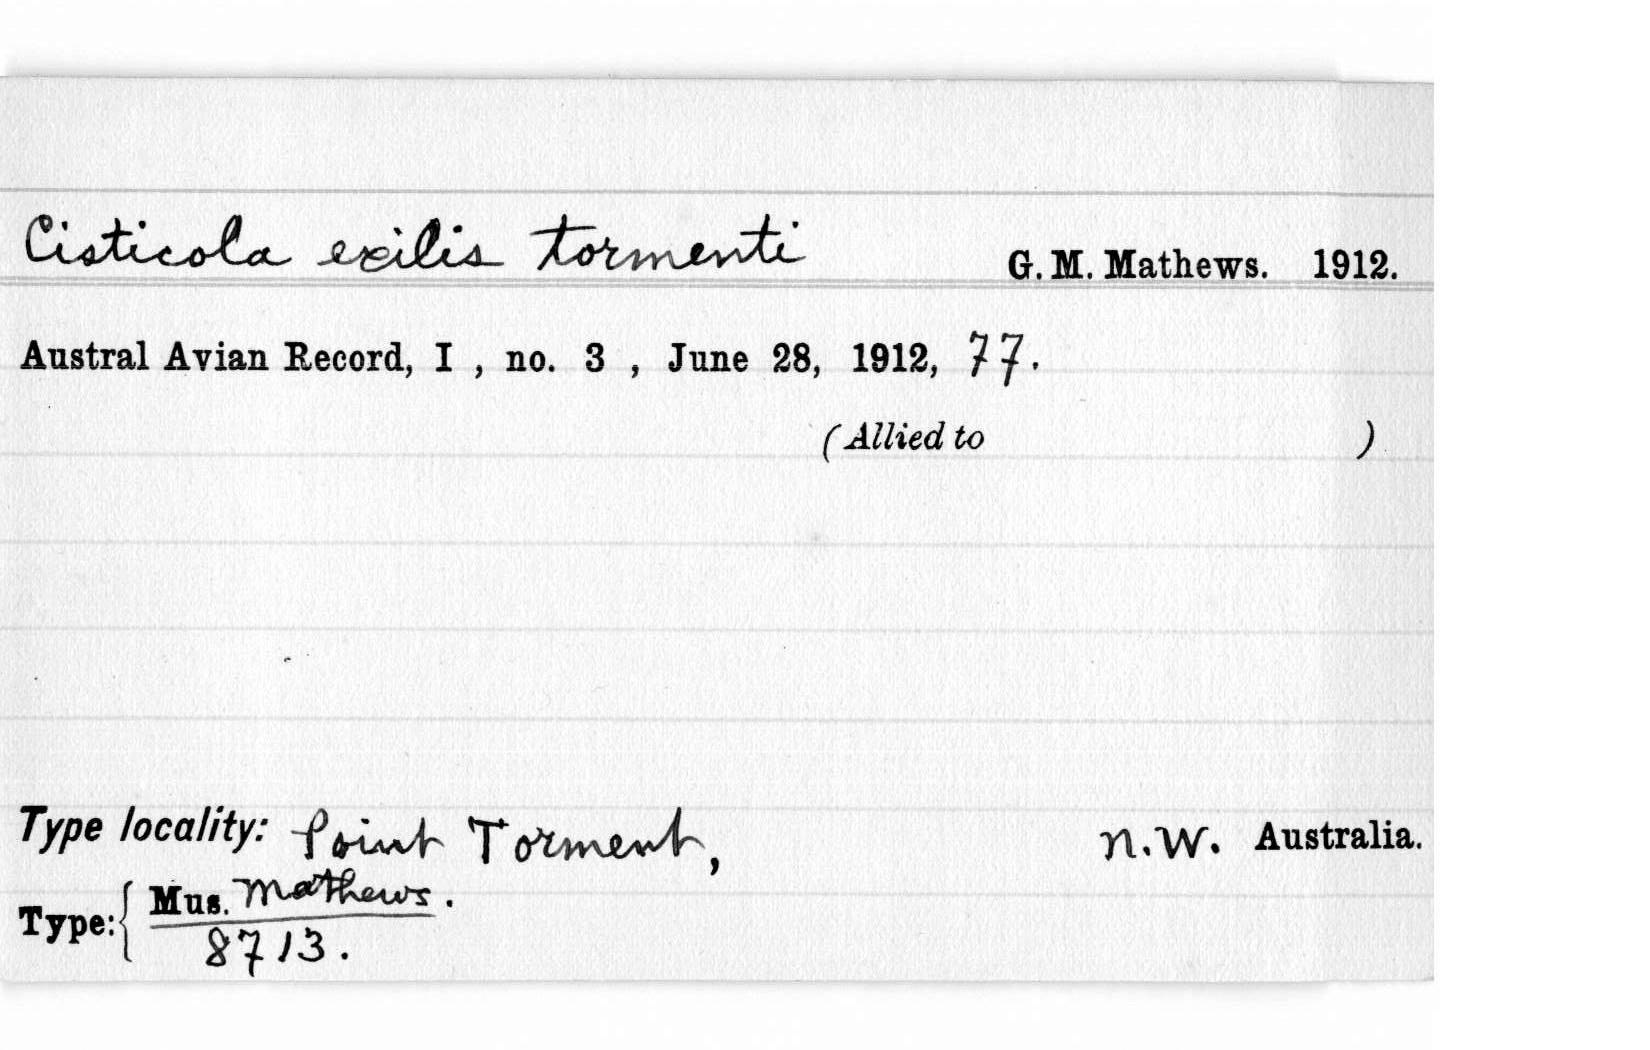 Cisticola exilis tormenti G. M. Mathews. 1912.
Austral Avian Record, I , no. 3 , June 28, 1912, 77.
(Allied to )
Type locality: Point Torment, N.W. Australia.
Type: { Mus. Mathews.
8713.